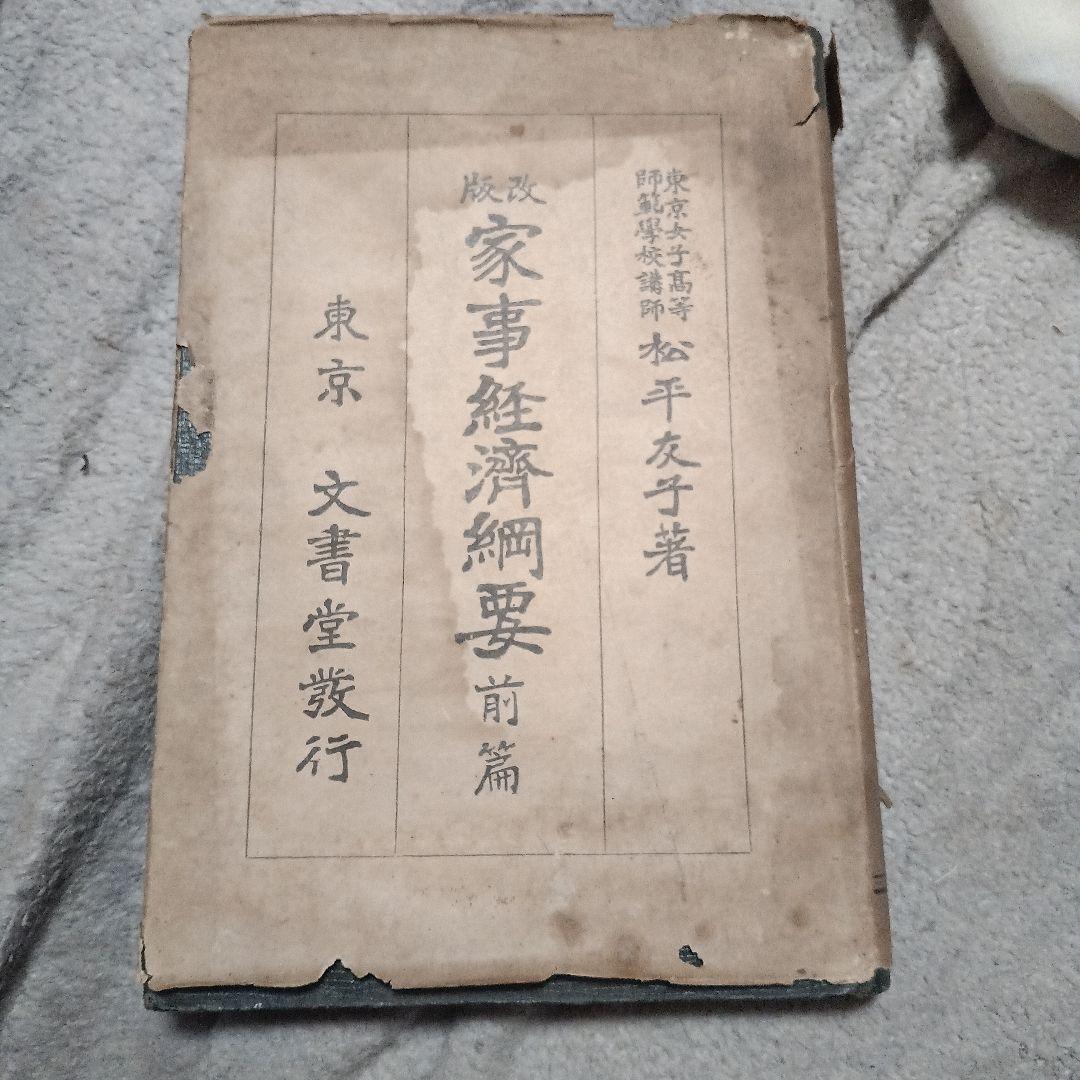 東京女子高等
師範學校講師
松平友子著
改版
家事経済綱要前篇
東京 文書堂發行